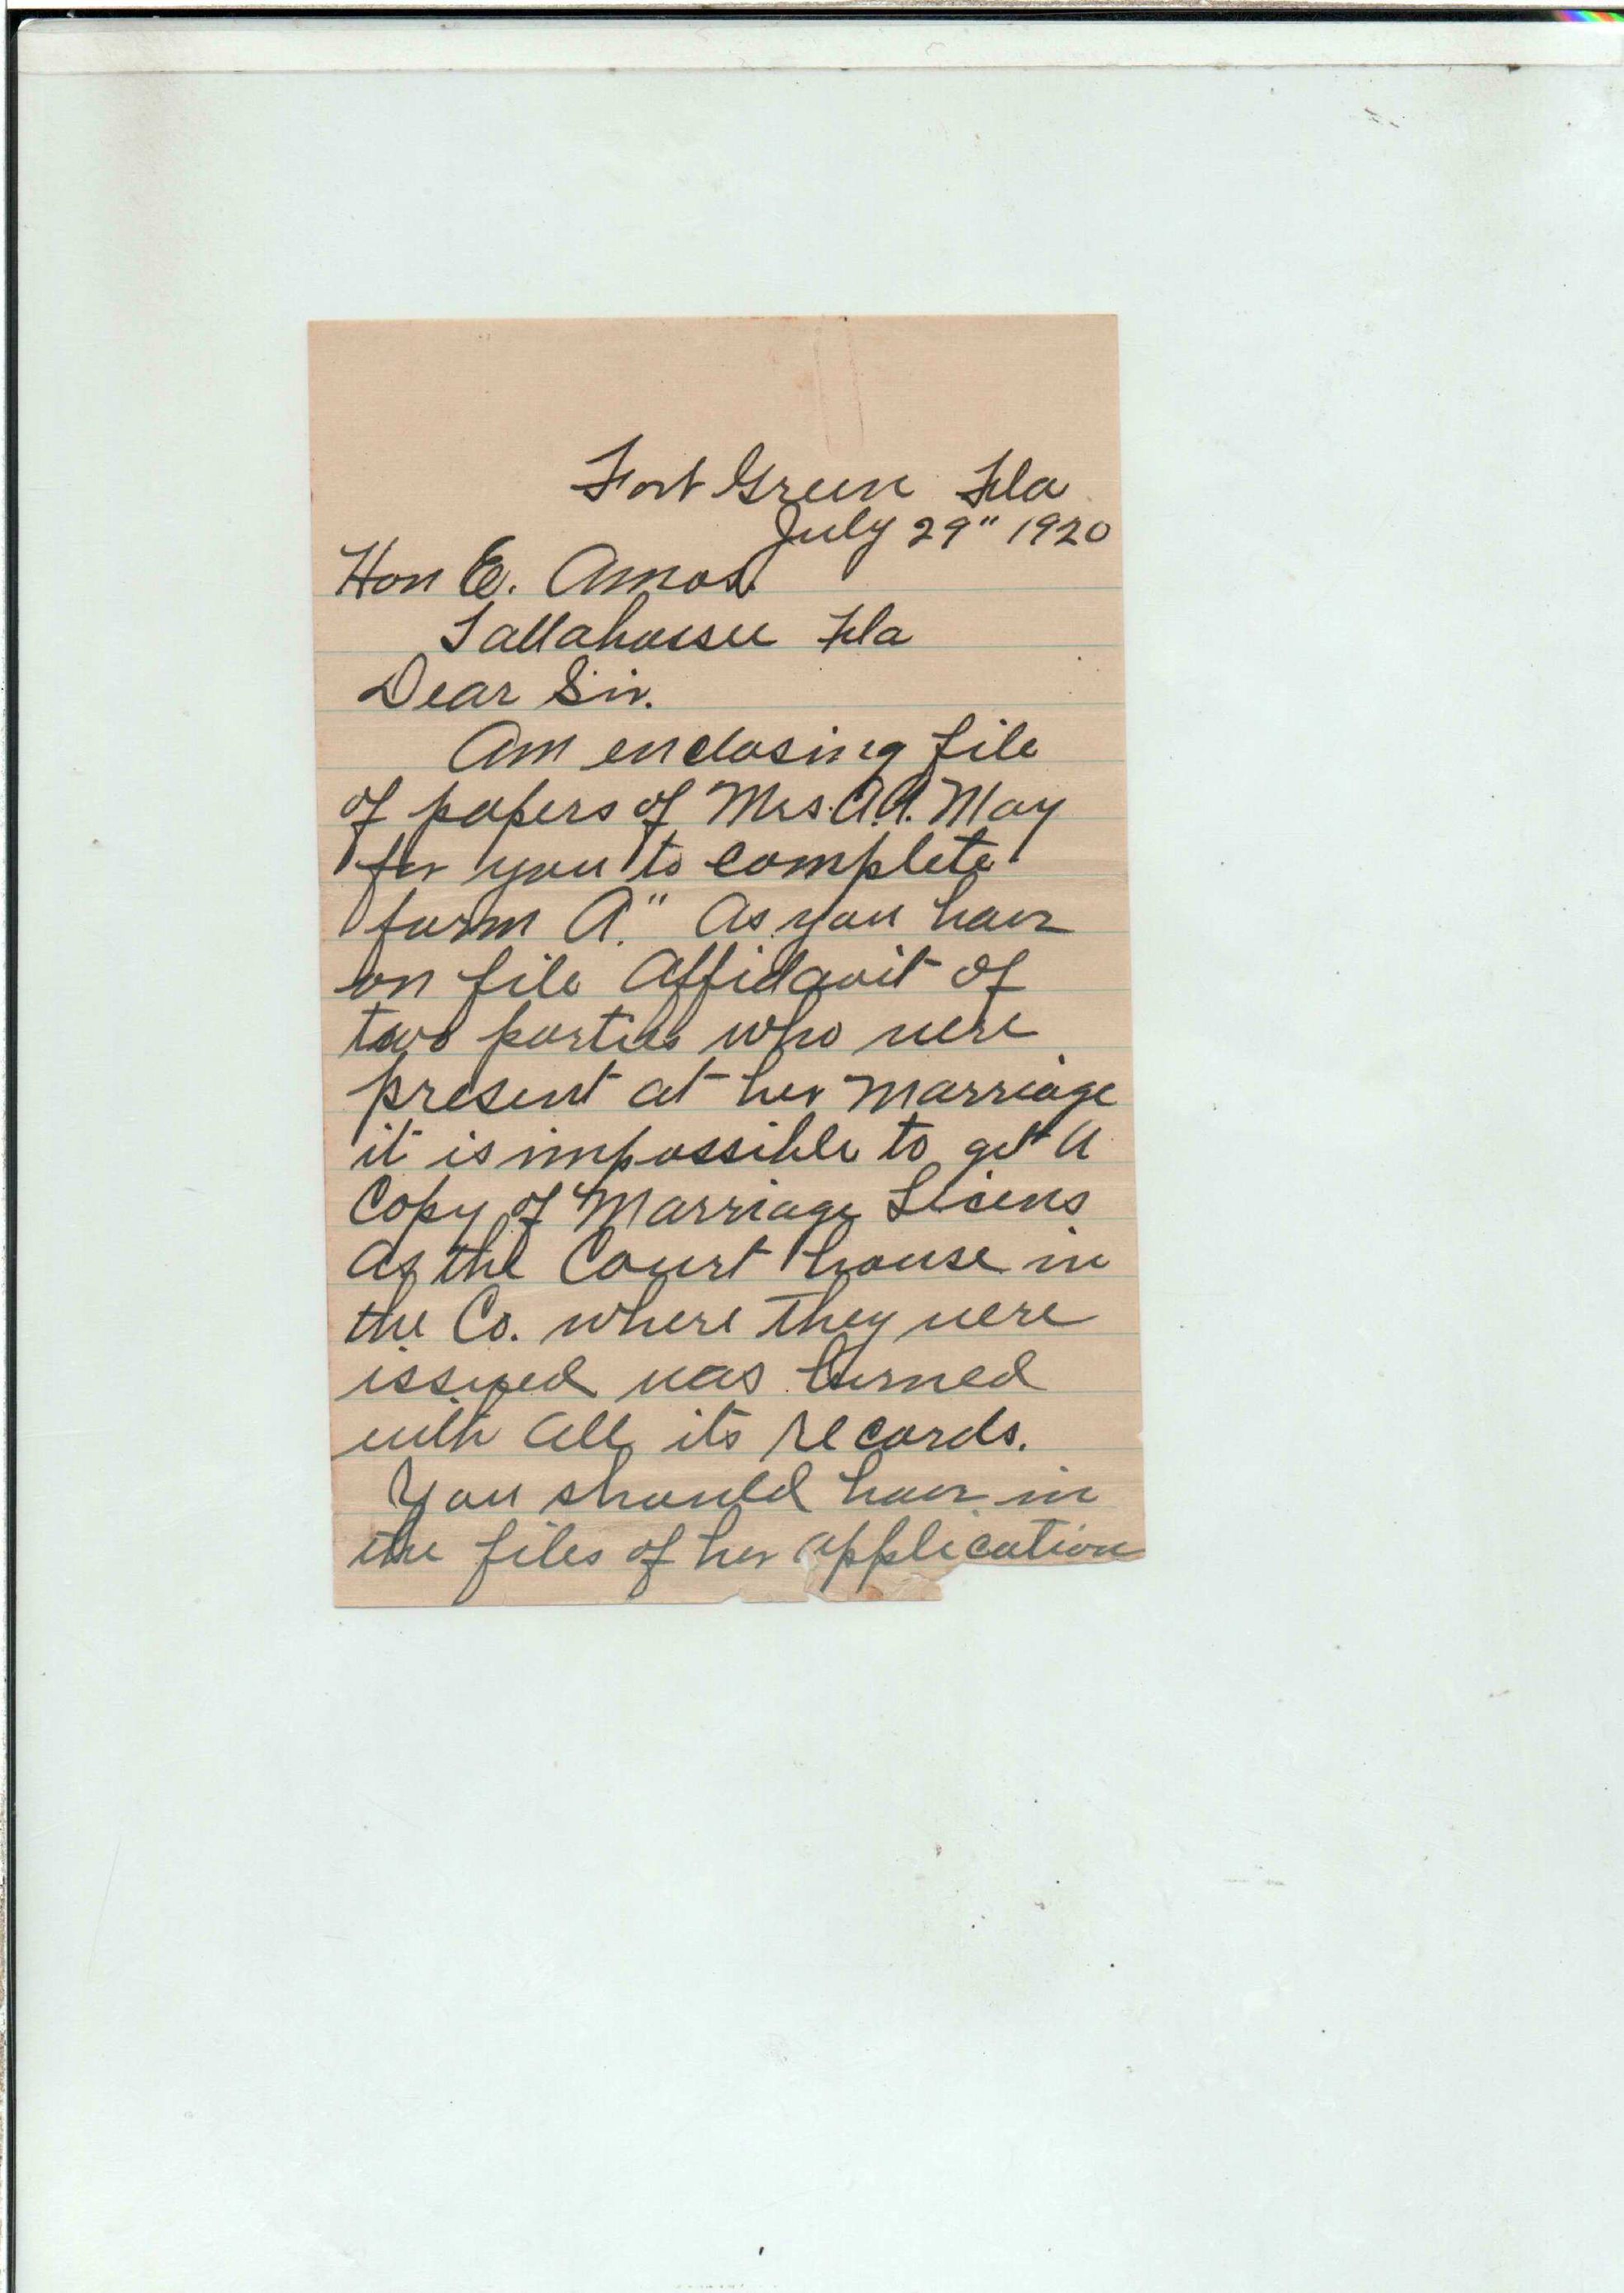 Fort Green Fla
July 29" 1920
Hon E. Amos.
Tallahassee Fla
Dear Sir.
Am enclosing file
of papers of Mrs. A.A. May
for you to complete
form A." As you have
on file Affidavit of
two parties who were
present at her marriage
it is impossible to get A
Copy of Marriage Licens
as the Court house in
the Co. where they were
issued was burned
with all its records.
You should have in
the files of her application